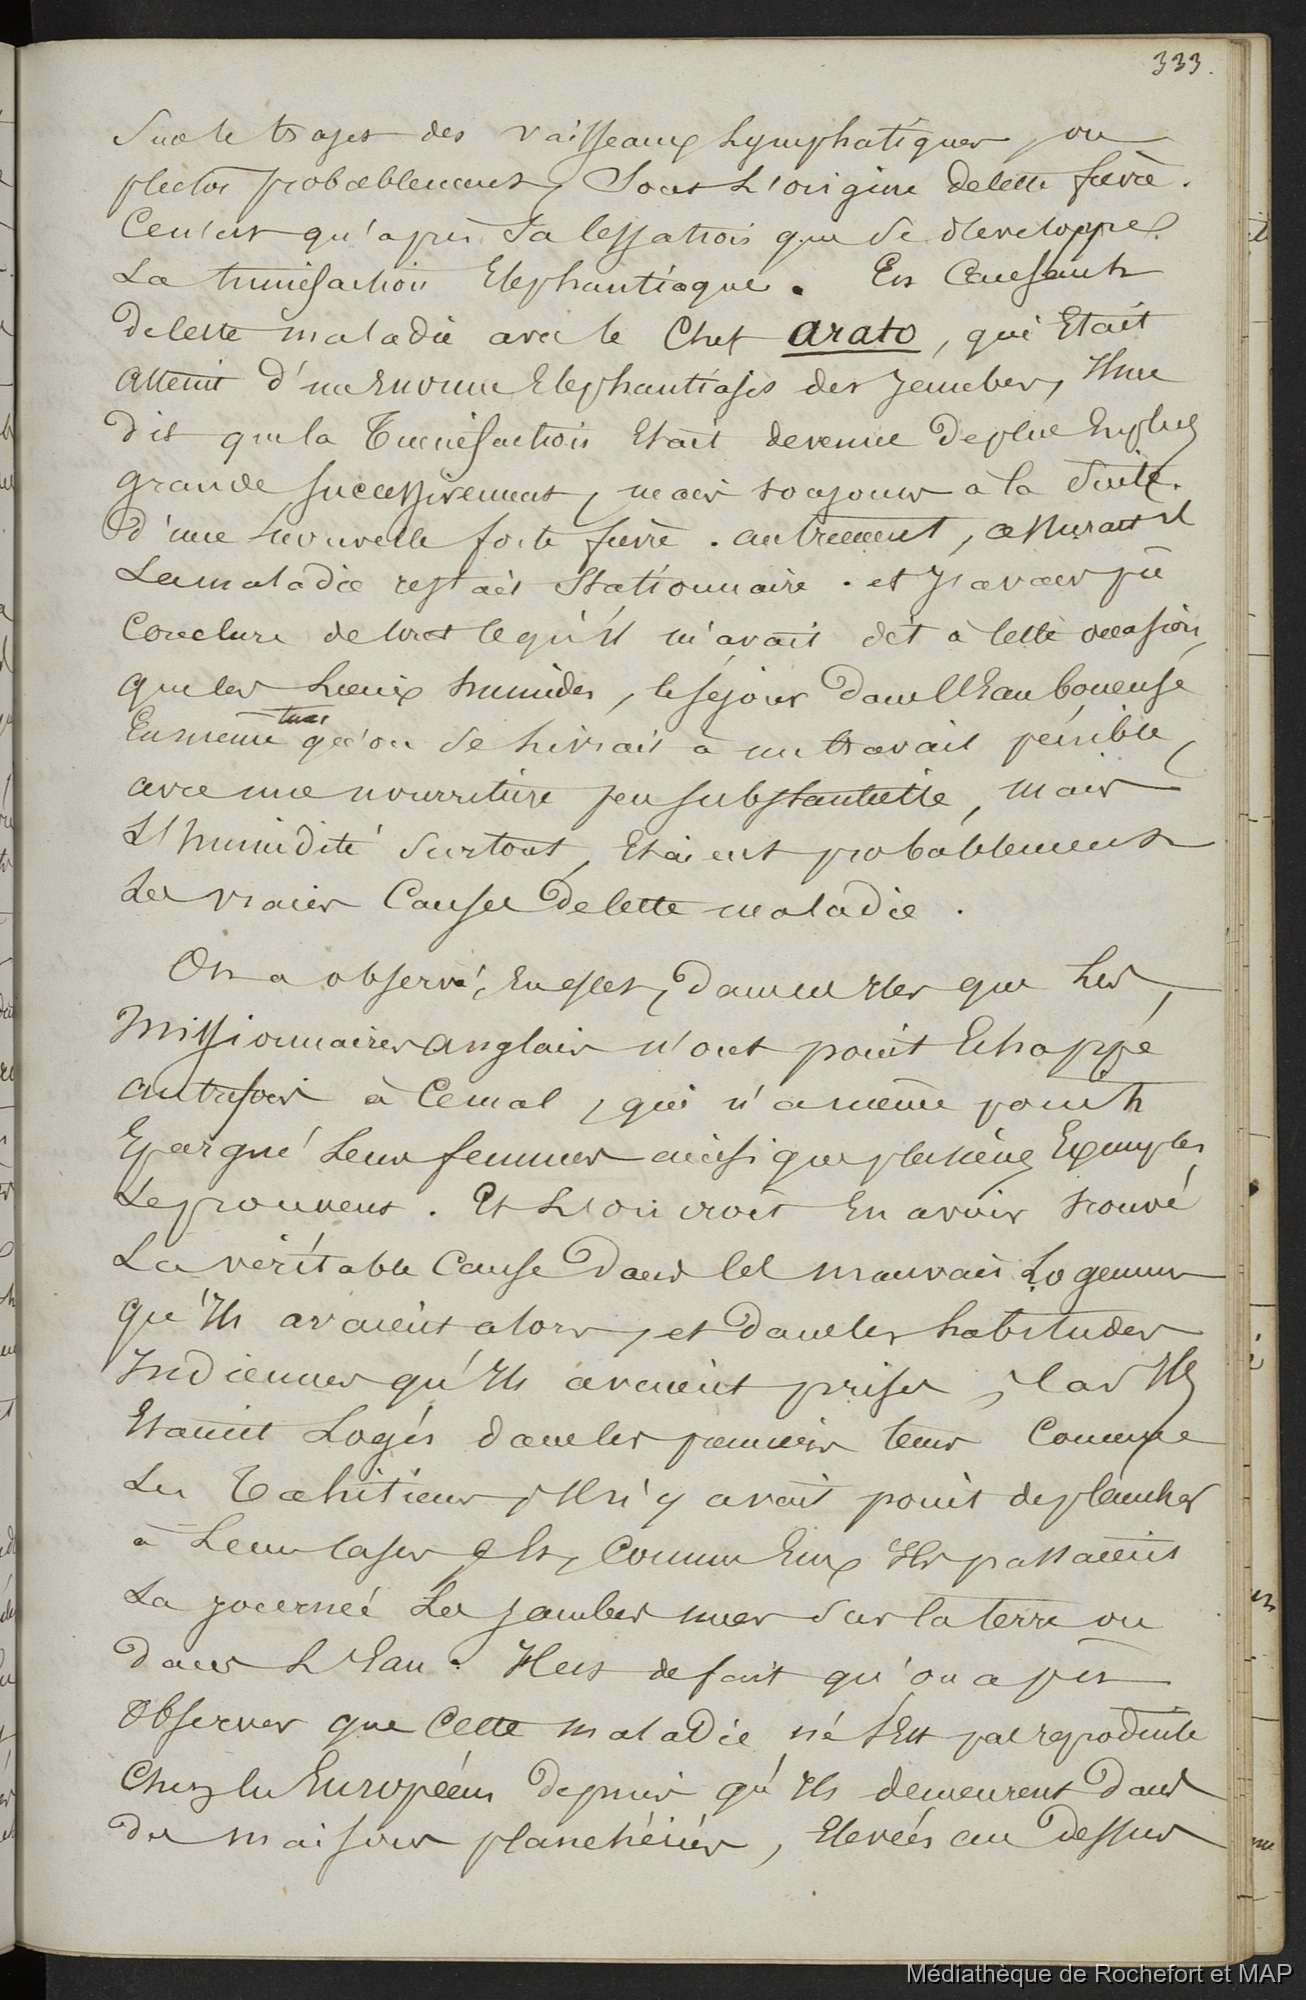 333.
Sur le trajet des vaisseaux Lymphatiques, ou
plutot probablement, Sous L'origine de cette fièvre.
Ce n'est qu'après Sa Cessation que Se developpe
La tuméfaction Elephantiaque. En Causant
de cette maladie avec le Chef Arato, qui Etait
Atteint d'un Enorme Elephantiasis des Jambes, Il me
dit que la Tuméfaction Etait devenue de plus En plus
grande successivement, mais toujours à la Suite
d'une Nouvelle forte fièvre. autrement, assurait il
La maladie restait Stationnaire. et J'avais pû
Conclure de tout ce qu'il m'avait dit à Cette occasion,
que les Lieux humides, le séjour dans l'Eau boueuse
En même tems qu'on Se livrait à un travail pénible,
avec une nourriture peu substantielle, mais
L'humidité Surtout, Etaient probablement
Les vraies Causes de Cette maladie.
On a observé, En effet, dans ces Iles que Les
Missionnaires anglais n'ont point Echappé
autrefois à Ce mal, qui n'a même point
Epargné Leurs femmes ainsi que plusieurs Exemples
Le prouvent. Et L'on croit En avoir trouvé
La véritable Cause dans les mauvais Logemens
qu'Ils avaient alors, et dans les habitudes
Indiennes qu'Ils avaient prises, Car Ils
Etaient Logés dans les premiers tems Comme
Les Tahitiens, Il n'y avait point de plancher
à Leurs Cases Et, Comme Eux Ils passaient
La journée Les jambes nues Sur la terre ou
dans L'Eau. Il est de fait qu'on a pu
Observer que Cette maladie ne s'Est pas reproduite
Chez les Européens depuis qu'Ils demeurent dans
des maisons planchéiées, Elevées au dessus
Médiathèque de Rochefort et MAP